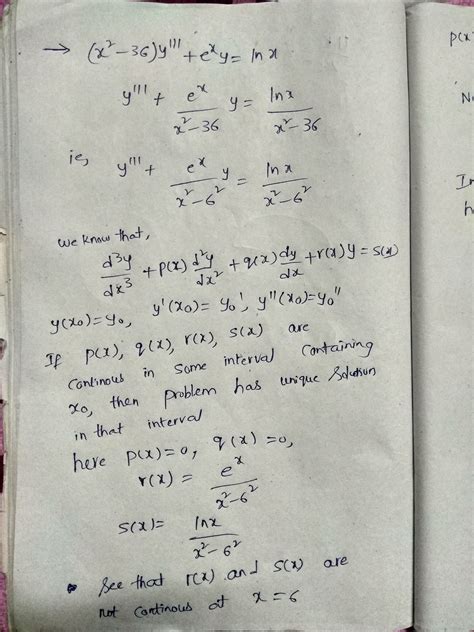 → (x² - 36)y''' + eˣy = ln x
y''' + eˣ/(x² - 36) y = ln x/(x² - 36)
ie, y''' + eˣ/(x² - 6²) y = ln x/(x² - 6²)
we know that,
d³y/dx³ + p(x) d²y/dx² + q(x) dy/dx + r(x)y = s(x)
y(x₀) = y₀, y'(x₀) = y₀', y''(x₀) = y₀''
If p(x), q(x), r(x), s(x) are
continous in some interval containing
x₀, then problem has unique solution
in that interval
here p(x) = 0, q(x) = 0,
r(x) = eˣ/(x² - 6²)
s(x) = ln x/(x² - 6²)
• See that r(x) and s(x) are
not continous at x = 6
p(x